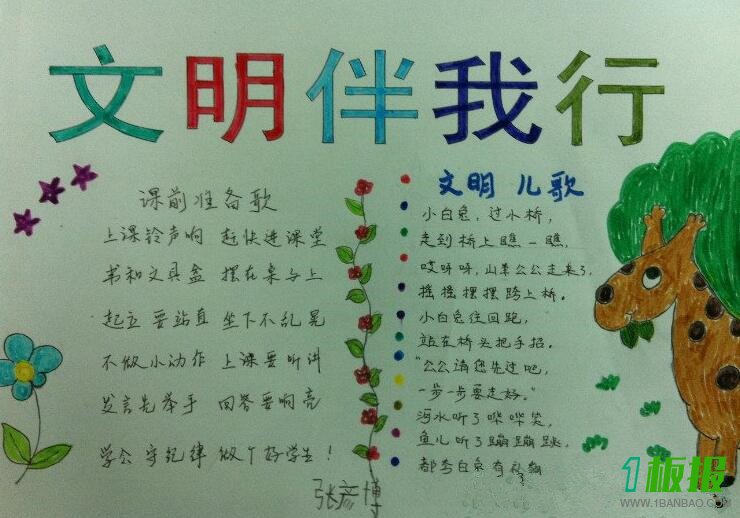 文明伴我行
课前准备歌
上课铃声响 赶快进课堂
书和文具盒 摆在桌与上
起立要站直 坐下不乱晃
不做小动作 上课要听讲
发言先举手 回答要响亮
学会守纪律 做个好学生！
张彦博
文明儿歌
小白兔，过小桥，
走到桥上瞧一瞧，
哎呀呀，山羊公公走来了，
摇摇摆摆跨上桥。
小白兔往回跑，
站在桥头把手招。
“公公请您先过吧，
一步一步要走好。”
河水听了哗哗笑，
鱼儿听了蹦蹦跳，
都夸白兔有礼貌
1板报
WWW.1BANBAO.COM